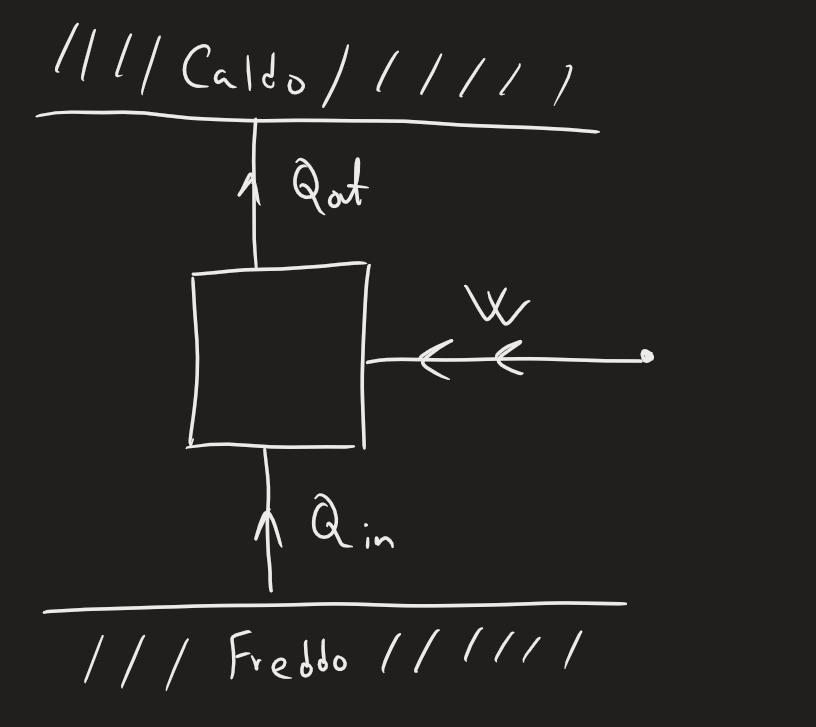 Caldo
Qout
W
Qin
Freddo